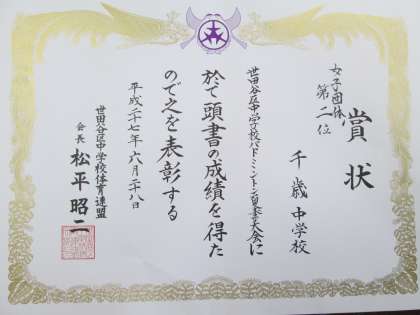 賞状
女子団体
第二位
千歳中学校
世田谷区中学校バドミントン夏季大会に
於て頭書の成績を得た
ので之を表彰する
平成二十七年六月二十八日
世田谷区中学校体育連盟
会長 松平昭二